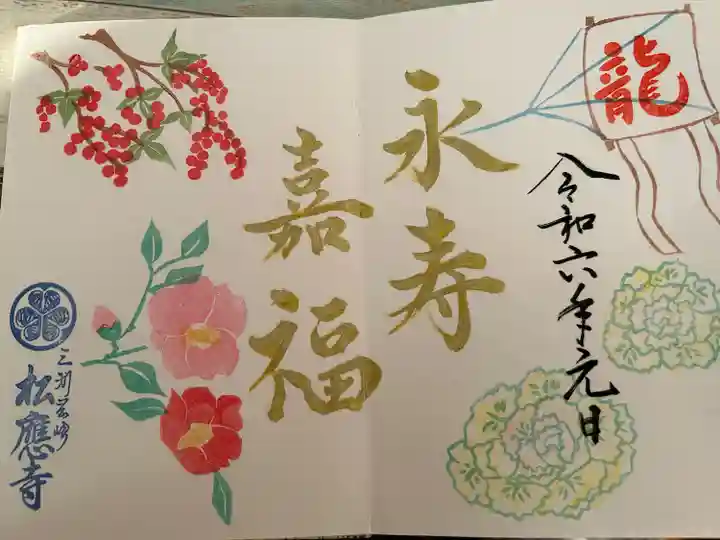 龍
令和六年元日
永寿
嘉福
三州岡崎
松應寺